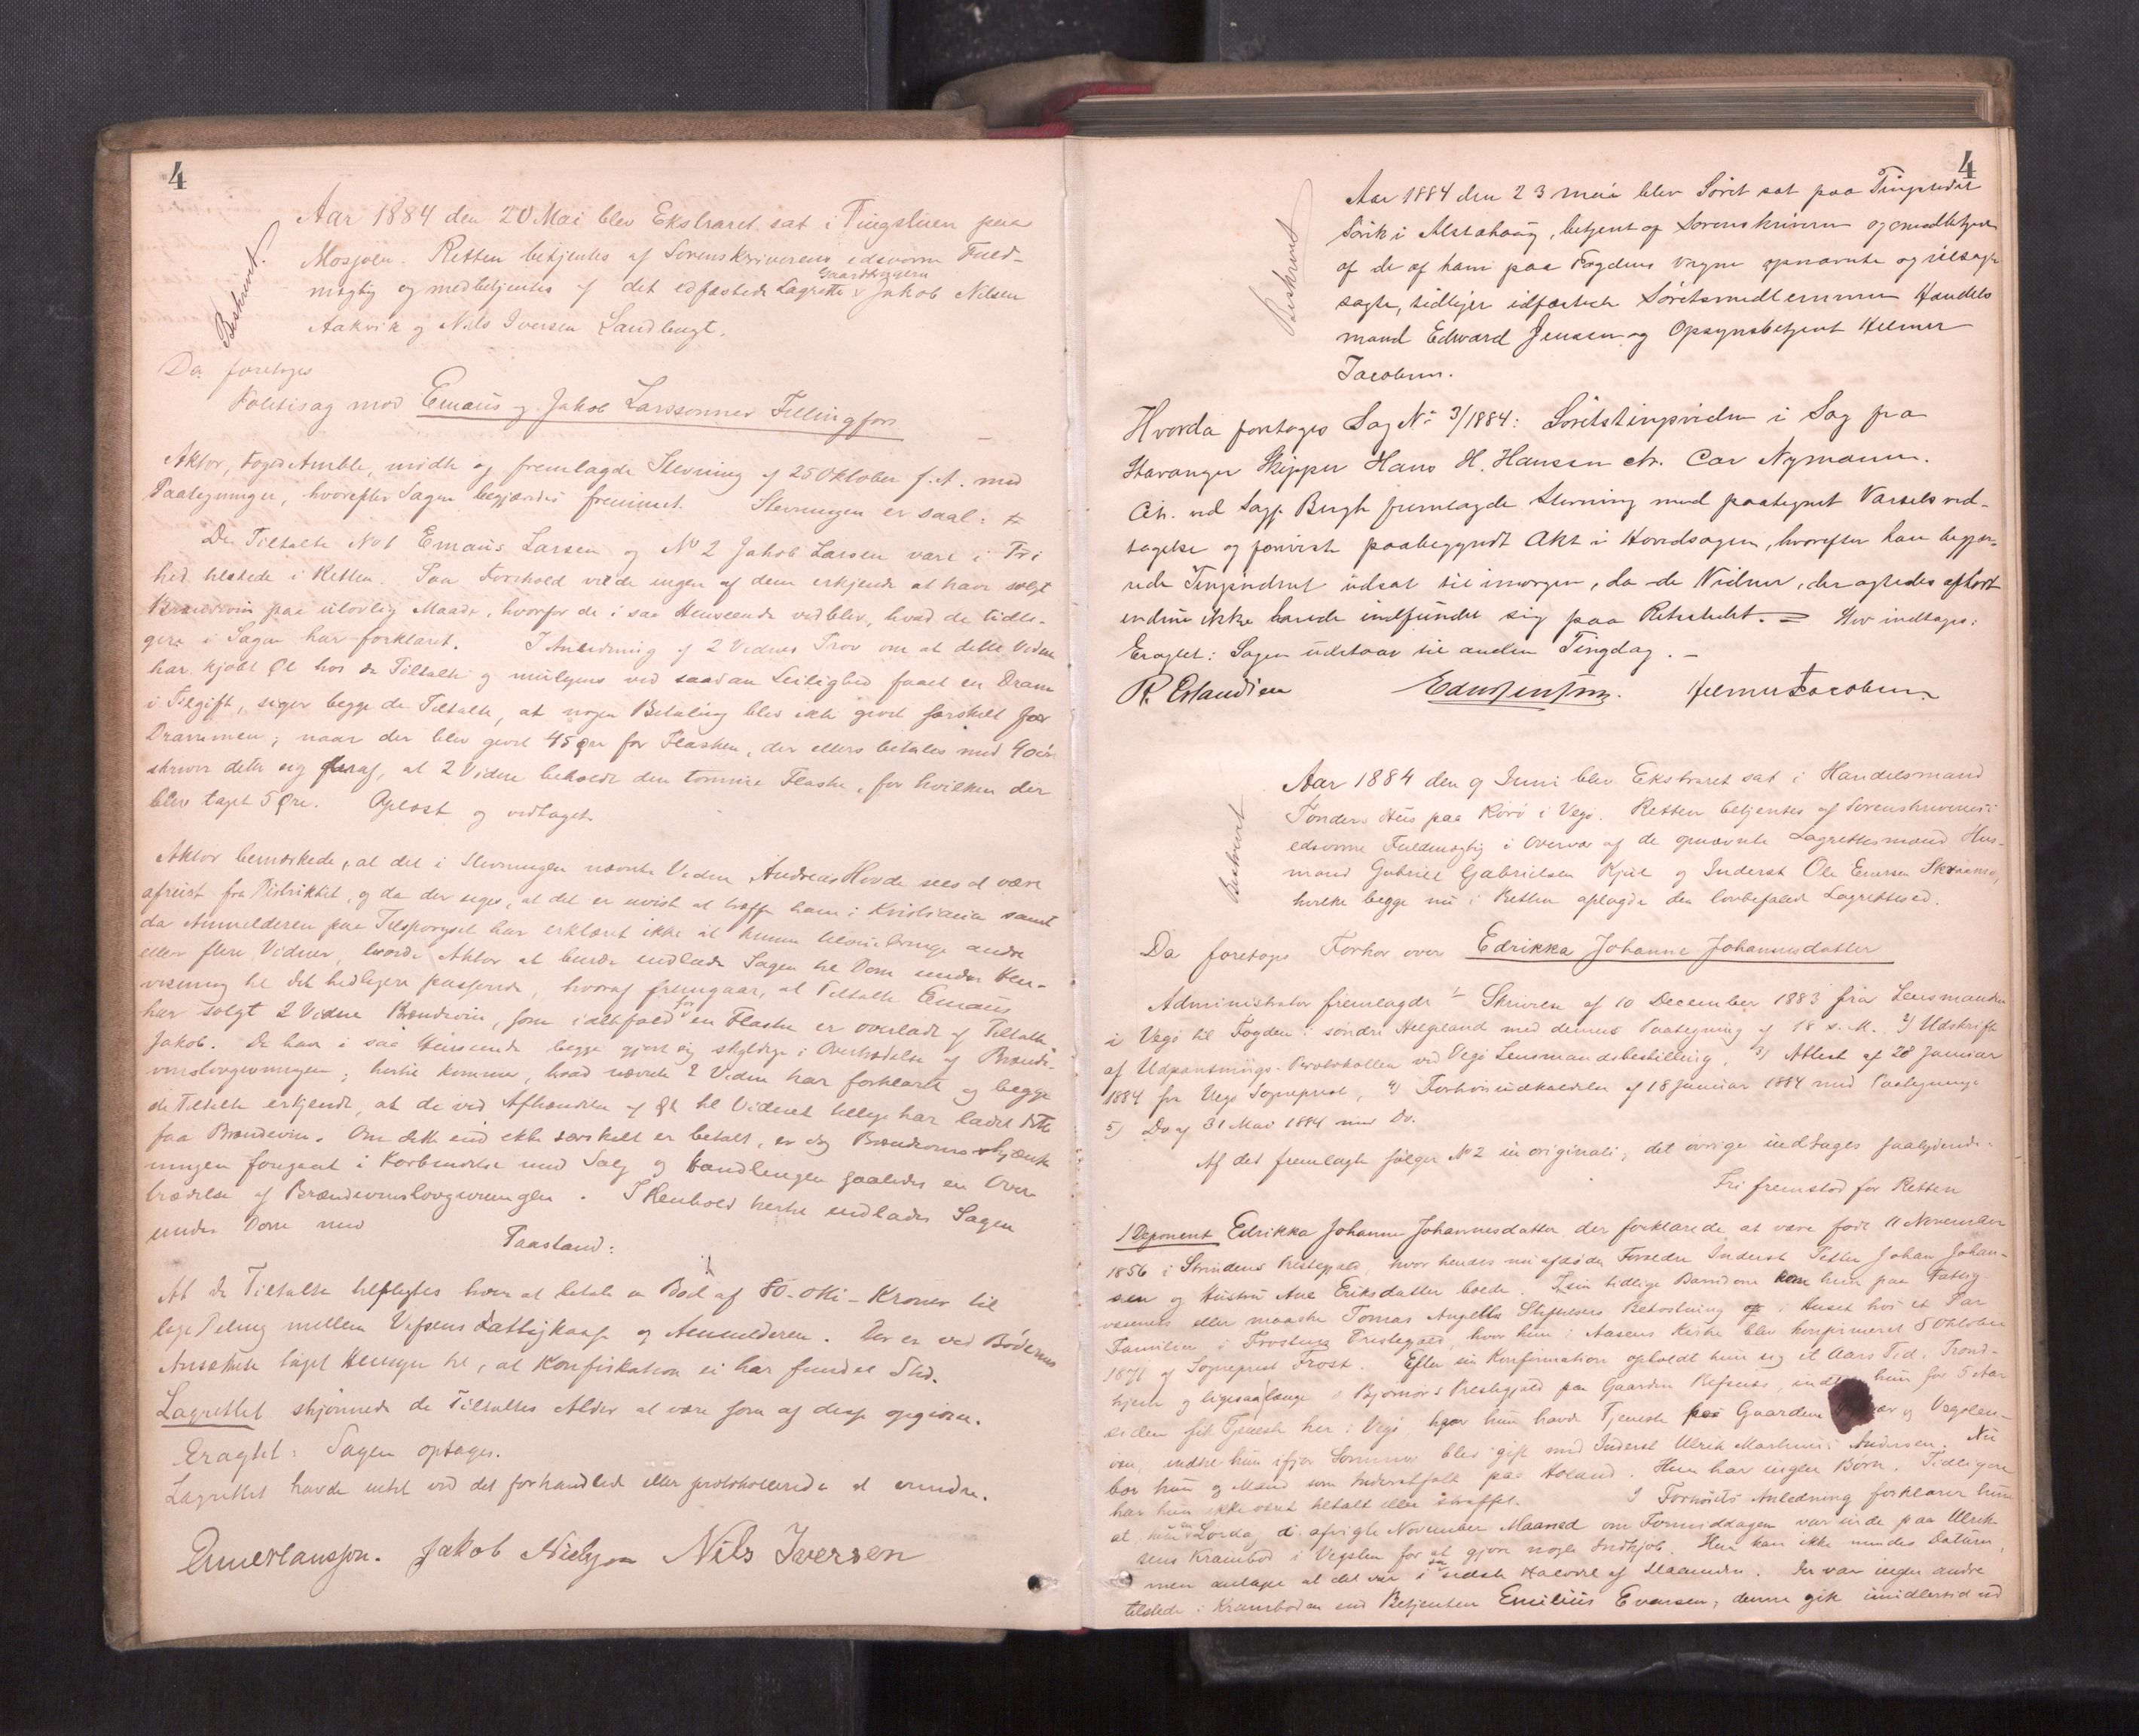 4
Beskrivet.
Aar 1884 den 20 Mai blev Ekstraret sat i Tingstuen paa
Mosjøen. Retten betjentes af Sorenskriverens edsvorne Fuld-
mægtig og medbetjentes af det edfæstede Lagrette Gaardbrugerne Jakob Nilsen
Aakvik og Nils Iversen Sandbugt.
Da foretoges
Politisag mod Emaus og Jakob Larssønner Fellingfors
Aktor, Foged Amble, mødte og fremlagde Stevning af 25 Oktober f. A. med
Paategninger, hvorefter Sagen begjærdes fremmet. Stevningen er saal:
De Tiltalte No 1 Emaus Larsen og No 2 Jakob Larsen vare i Fri
hed tilstede i Retten. Paa Forehold vilde ingen af dem erkjende at have solgt
Brændevin paa ulovlig Maade, hvorfor de i saa Henseende vedblev, hvad de tidli-
gere i Sagen har forklaret. I Anledning af 2 Vidnes Prov om at dette Vidne
har kjøbt Øl hos de Tiltalte og muligens ved saadan Leilighed faaet en Dram
i Tilgift, siger begge de Tiltalte, at nogen Betaling blev ikke gjort særskilt for
Drammen; naar der blev givet 45 Øre for Flasken, der ellers betales med 40 Øre
skriver dette sig deraf, at 2 Vidne beholdt den tomme Flaske, for hvilken der
blev taget 5 Øre. Oplæst og vedtaget.
Aktor bemærkede, at det i Stevningen nævnte Vidne Andreas Hovde sees at være
afreist fra Distriktet, og da der siges, at det er uvist at træffe ham i Kristiania samt
da Anmelderen paa Tilspørgsel har erklæret ikke at kunne tilveiebringe andre
eller flere Vidner, troede Aktor at burde indlade Sagen til Dom under Hen-
visning til det tidligere passerede, hvoraf fremgaar, at Tiltalte Emaus
har solgt 2 Vidne Brændevin, som ialtfald for en Flaske er overladt af Tiltalte
Jakob. De har i saa Henseende begge gjort sig skyldige i Overtrædelse af Brænde-
vinslovgivningen; hertil kommer, hvad nævnte 2 Vidne har forklaret og begge
de Tiltalte erkjendt, at de ved Afhændelse af Øl til Vidnet tillige har ladet dette
faa Brændevin. Om dette end ikke særskilt er betalt, er dog Brændevinsskjænk
ningen foregaaet i Forbindelse med Salg og Handlingen saaledes en Over-
trædelse af Brændevinslovgivningen. I Henhold hertil indlades Sagen
under Dom med
Paastand:
At de Tiltalte tilpligtes hver at betale en Bod af 80-otti-Kroner til
lige Deling mellem Vefsens Fattigkasse og Anmelderen. Der er ved Bødernes
Ansættelse taget Hensyn til, at Konfiskation ei har fundet Sted.
Lagrettet skjønnede de Tiltaltes Alder at være som af dem opgiven.
Eragtet: Sagen optages.
Lagrettet havde intet ved det forhandlede eller protokollerede at erindre.
Jakob Nielsen Nils Iversen
4
Beskrevet
Aar 1884 den 23 mai blev Søret sat paa Tingstedet
Søvik i Alstahoug, betjent af Sorenskriveren og medbetjent
af de af ham paa Fogdens vegne opnævnte og tilsagte
sagte, tidligere edfæstede Søretsmedlemmer Handels
mand Edward Jensen og Opsynsbetjent Helmer
Jacobsen.
Hvorda foretoges Sag No 3/1884: Søretstingsvidne i Sag fra
Stavanger Skipper Hans H. Hansen ctr. Car Nymann.
Cit. ved Sagf. Bugh fremlagde Stevning med paategnet Varsels ved-
tagelse og forviste paabegyndt Akt i Hovedsagen, hvorefter han begjæ-
rede Tingsvidnet udsat til imorgen, da de Vidner, der agtedes afhørt
endnu ikke havde indfundet sig paa Retsstedet. = Hvor indtages:
Eragtet: Sagen udstaar til anden Tingdag. -
R. Erlandsen Edw Jensen. Helmer Jacobsen
Beskrevet
Aar 1884 den 9 Juni blev Ekstraret sat i Handelsmand
Tønders Hus paa Rørø i Vegø. Retten betjentes af Sorenskriverens
edsvorne Fuldmægtig i Overvær af de opnævnte Lagrettesmænd Hus-
mand Gabriel Gabrielsen Kjul og Inderst Ole Enersen
hvilke begge nu i Retten aflagde den lovbefalede Lagrettesed.
Da foretoges Forhør over Edrikka Johanne Johannesdatter
Administrator fremlagde 1/ Skrivelse af 10 December 1883 fra Lensmanden
i Vegø til Fogden i søndre Helgeland med dennes Paategning af 18 s. M. 2) Udskrift
af Udpantnings-Protokollen ved Vegø Lensmandsbestilling, 3) Attest af 28 Januar
1884 fra Vegø Sogneprest, 4) Forhørsindkaldelse af 18 Januar 1884 med Paategninger
5) Do af 31 Mai 1884 med Do.
Af det fremlagte følger No 2 in originali; det øvrige indtages saalydende:
Fri fremstod for Retten
1 Deponent Edrikka Johanne Johannesdatter der forklarede at være født 11 November
1856 i Strindens Prestegjeld, hvor hendes nu afdøde Forældre Inderst Petter Johan Johan-
sen og Hustru Ane Eriksdatter boede. I sin tidlige Barndom kom hun paa Fattig-
væsenets eller maaske Tomas Angells Stiftelses Bekostning i Huset hos et Par
Familier i Frostens Prestegjeld, hvor hun i Aasens Kirke blev konfirmeret 8 Oktober
1871 af Sogneprest Frost. Efter sin Konfirmation opholdt hun sig et Aars Tid i Trond-
hjem og ligesaalænge i Bjørnørs Prestegjeld paa Gaarden Refsnes, indtil hun for 5 Aar
siden fik Tjeneste her i Vegø, hvor hun havde Tjeneste paa Gaardene og Vegsten-
indtil hun ifjor Sommer blev gift med Inderst Ulrik Martinus Andersen. Nu
bor hun og Mand som Inderstfolk paa Holand. Hun har ingen Børn. Tidligere
har hun ikke været tiltalt eller straffet. I Forhørets Anledning forklarer hun
at hun en Lørdag i afvigte November Maaned om Formiddagen var inde paa Ulrik-
sens Krambod i Vegsten for at gjøre nogle Indkjøb. Hun kan ikke mindes Datum,
men antager at det var i den sidste Halvdel af Maaneden. Der var ingen andre
tilstede i Kramboden end Betjenten Emilius Evensen; denne gik imidlertid ud